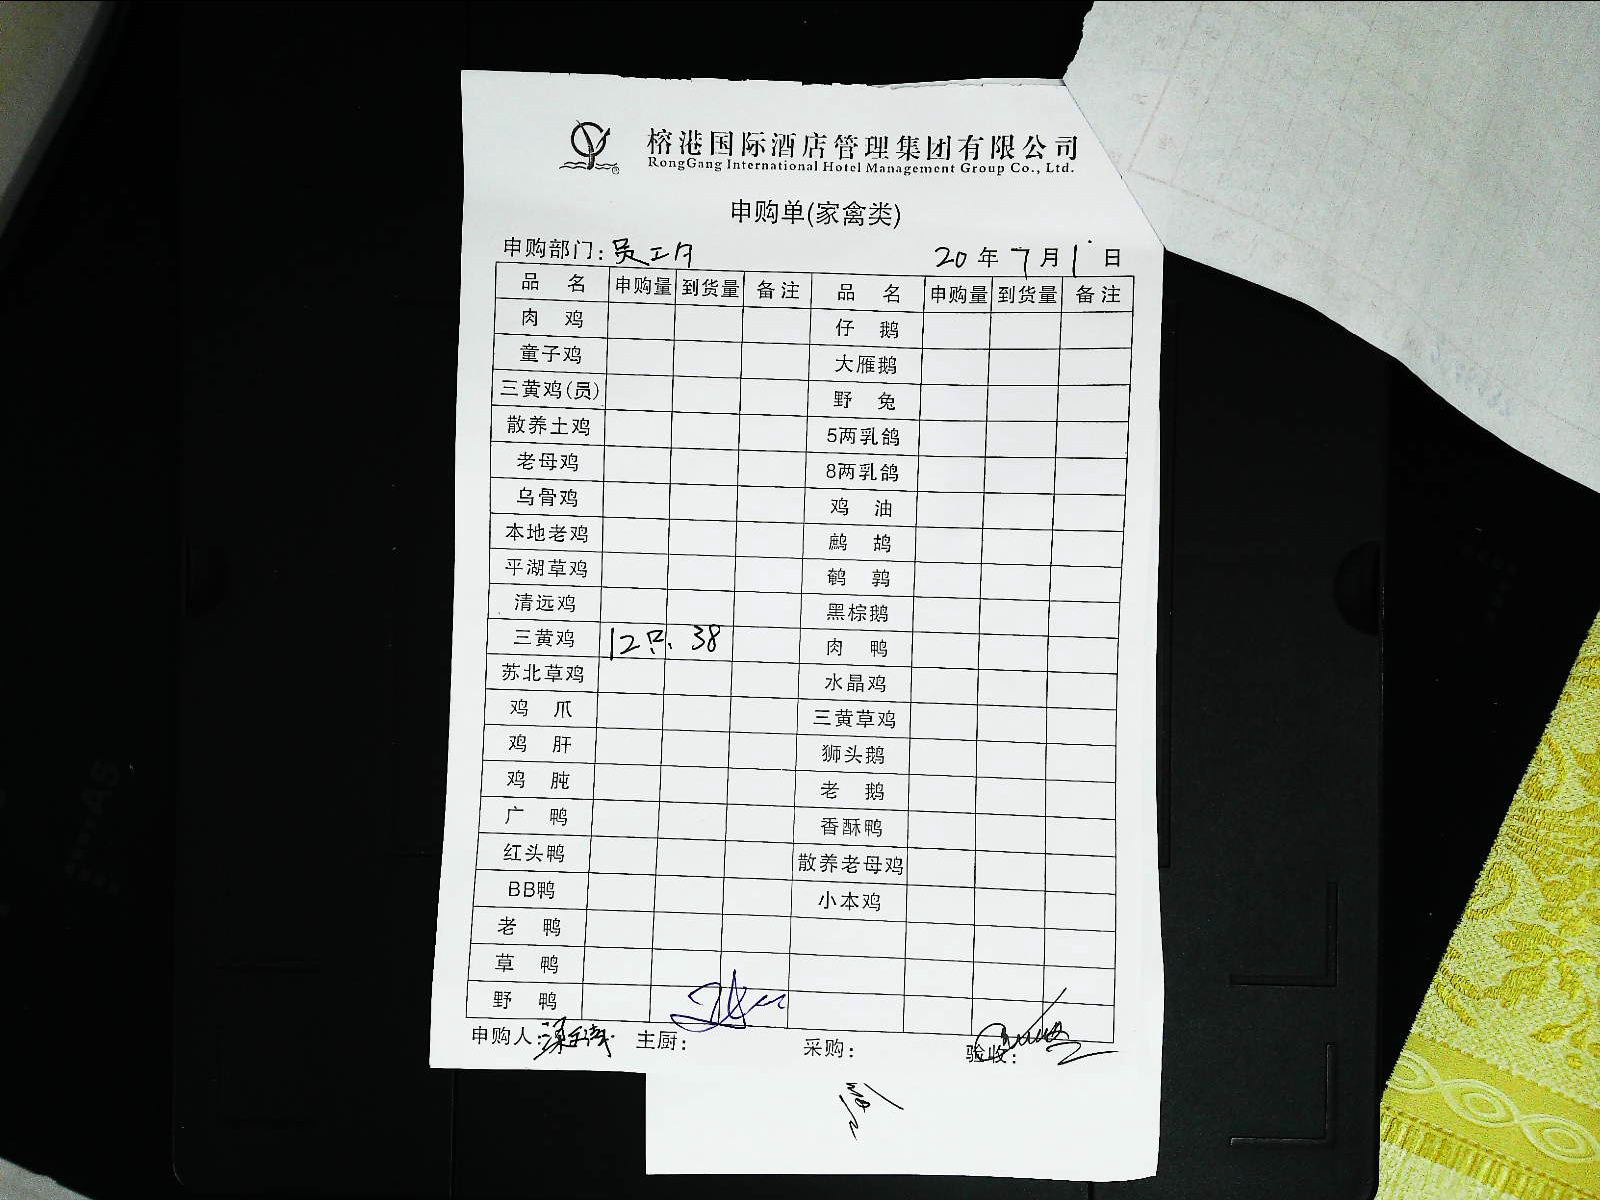 榕港国际酒店管理集团有限公司
RongGang International Hotel Management Group Co., Ltd.
申购单(家禽类)
申购部门: 20 年 7 月 1 日
品 名 申购量 到货量 备注 品 名 申购量 到货量 备注
肉 鸡 仔 鹅
童子鸡 大雁鹅
三黄鸡(员) 野 兔
散养土鸡 5两乳鸽
老母鸡 8两乳鸽
乌骨鸡 鸡 油
本地老鸡 鹧 鸪
平湖草鸡 鹌 鹑
清远鸡 黑棕鹅
三黄鸡 12只. 38 肉 鸭
苏北草鸡 水晶鸡
鸡 爪 三黄草鸡
鸡 肝 狮头鹅
鸡 肫 老 鹅
广 鸭 香酥鸭
红头鸭 散养老母鸡
BB鸭 小本鸡
老 鸭
草 鸭
野 鸭
申购人: 主厨: 采购: 验收: